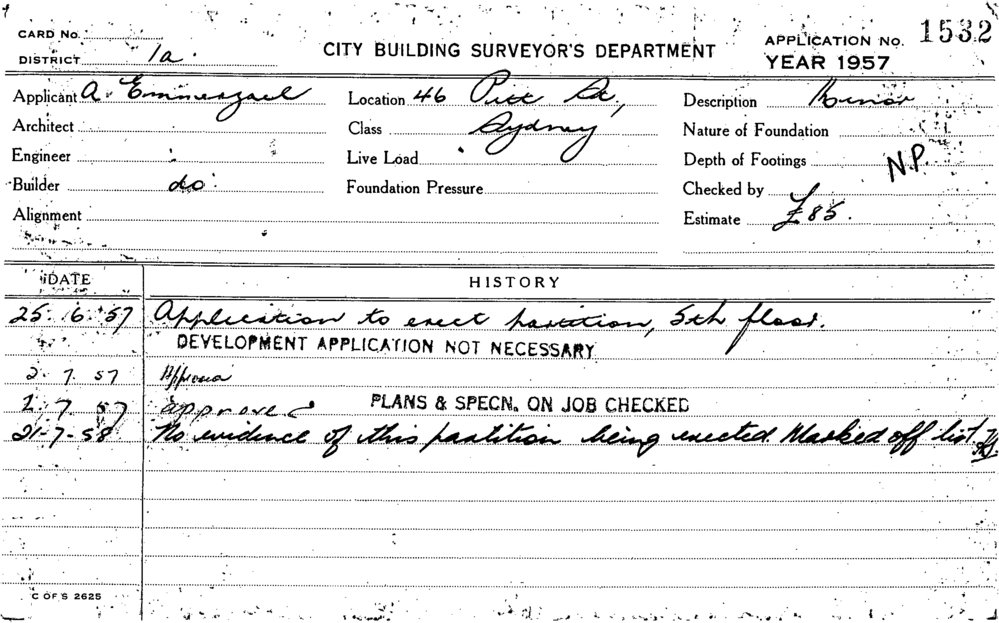 CARD No.
DISTRICT 1a.
CITY BUILDING SURVEYOR'S DEPARTMENT
APPLICATION No. 1532
YEAR 1957
Applicant A. Emmerzael
Location 46 Pitt St,
Description Minor
Architect
Class Sydney
Nature of Foundation
Engineer
Live Load
Depth of Footings N.P.
Builder do.
Foundation Pressure
Checked by
Alignment
Estimate £85.
DATE HISTORY
25. 6. 57 Application to erect partition, 5th floor.
DEVELOPMENT APPLICATION NOT NECESSARY
2. 7. 57 Approved
2. 7. 57 approved PLANS & SPECN. ON JOB CHECKED
21-7-58 No evidence of this partition being erected. Marked off list
C OF S 2625